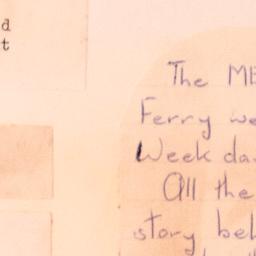 d
t
The ME
Ferry we
Week da
All the
story bel